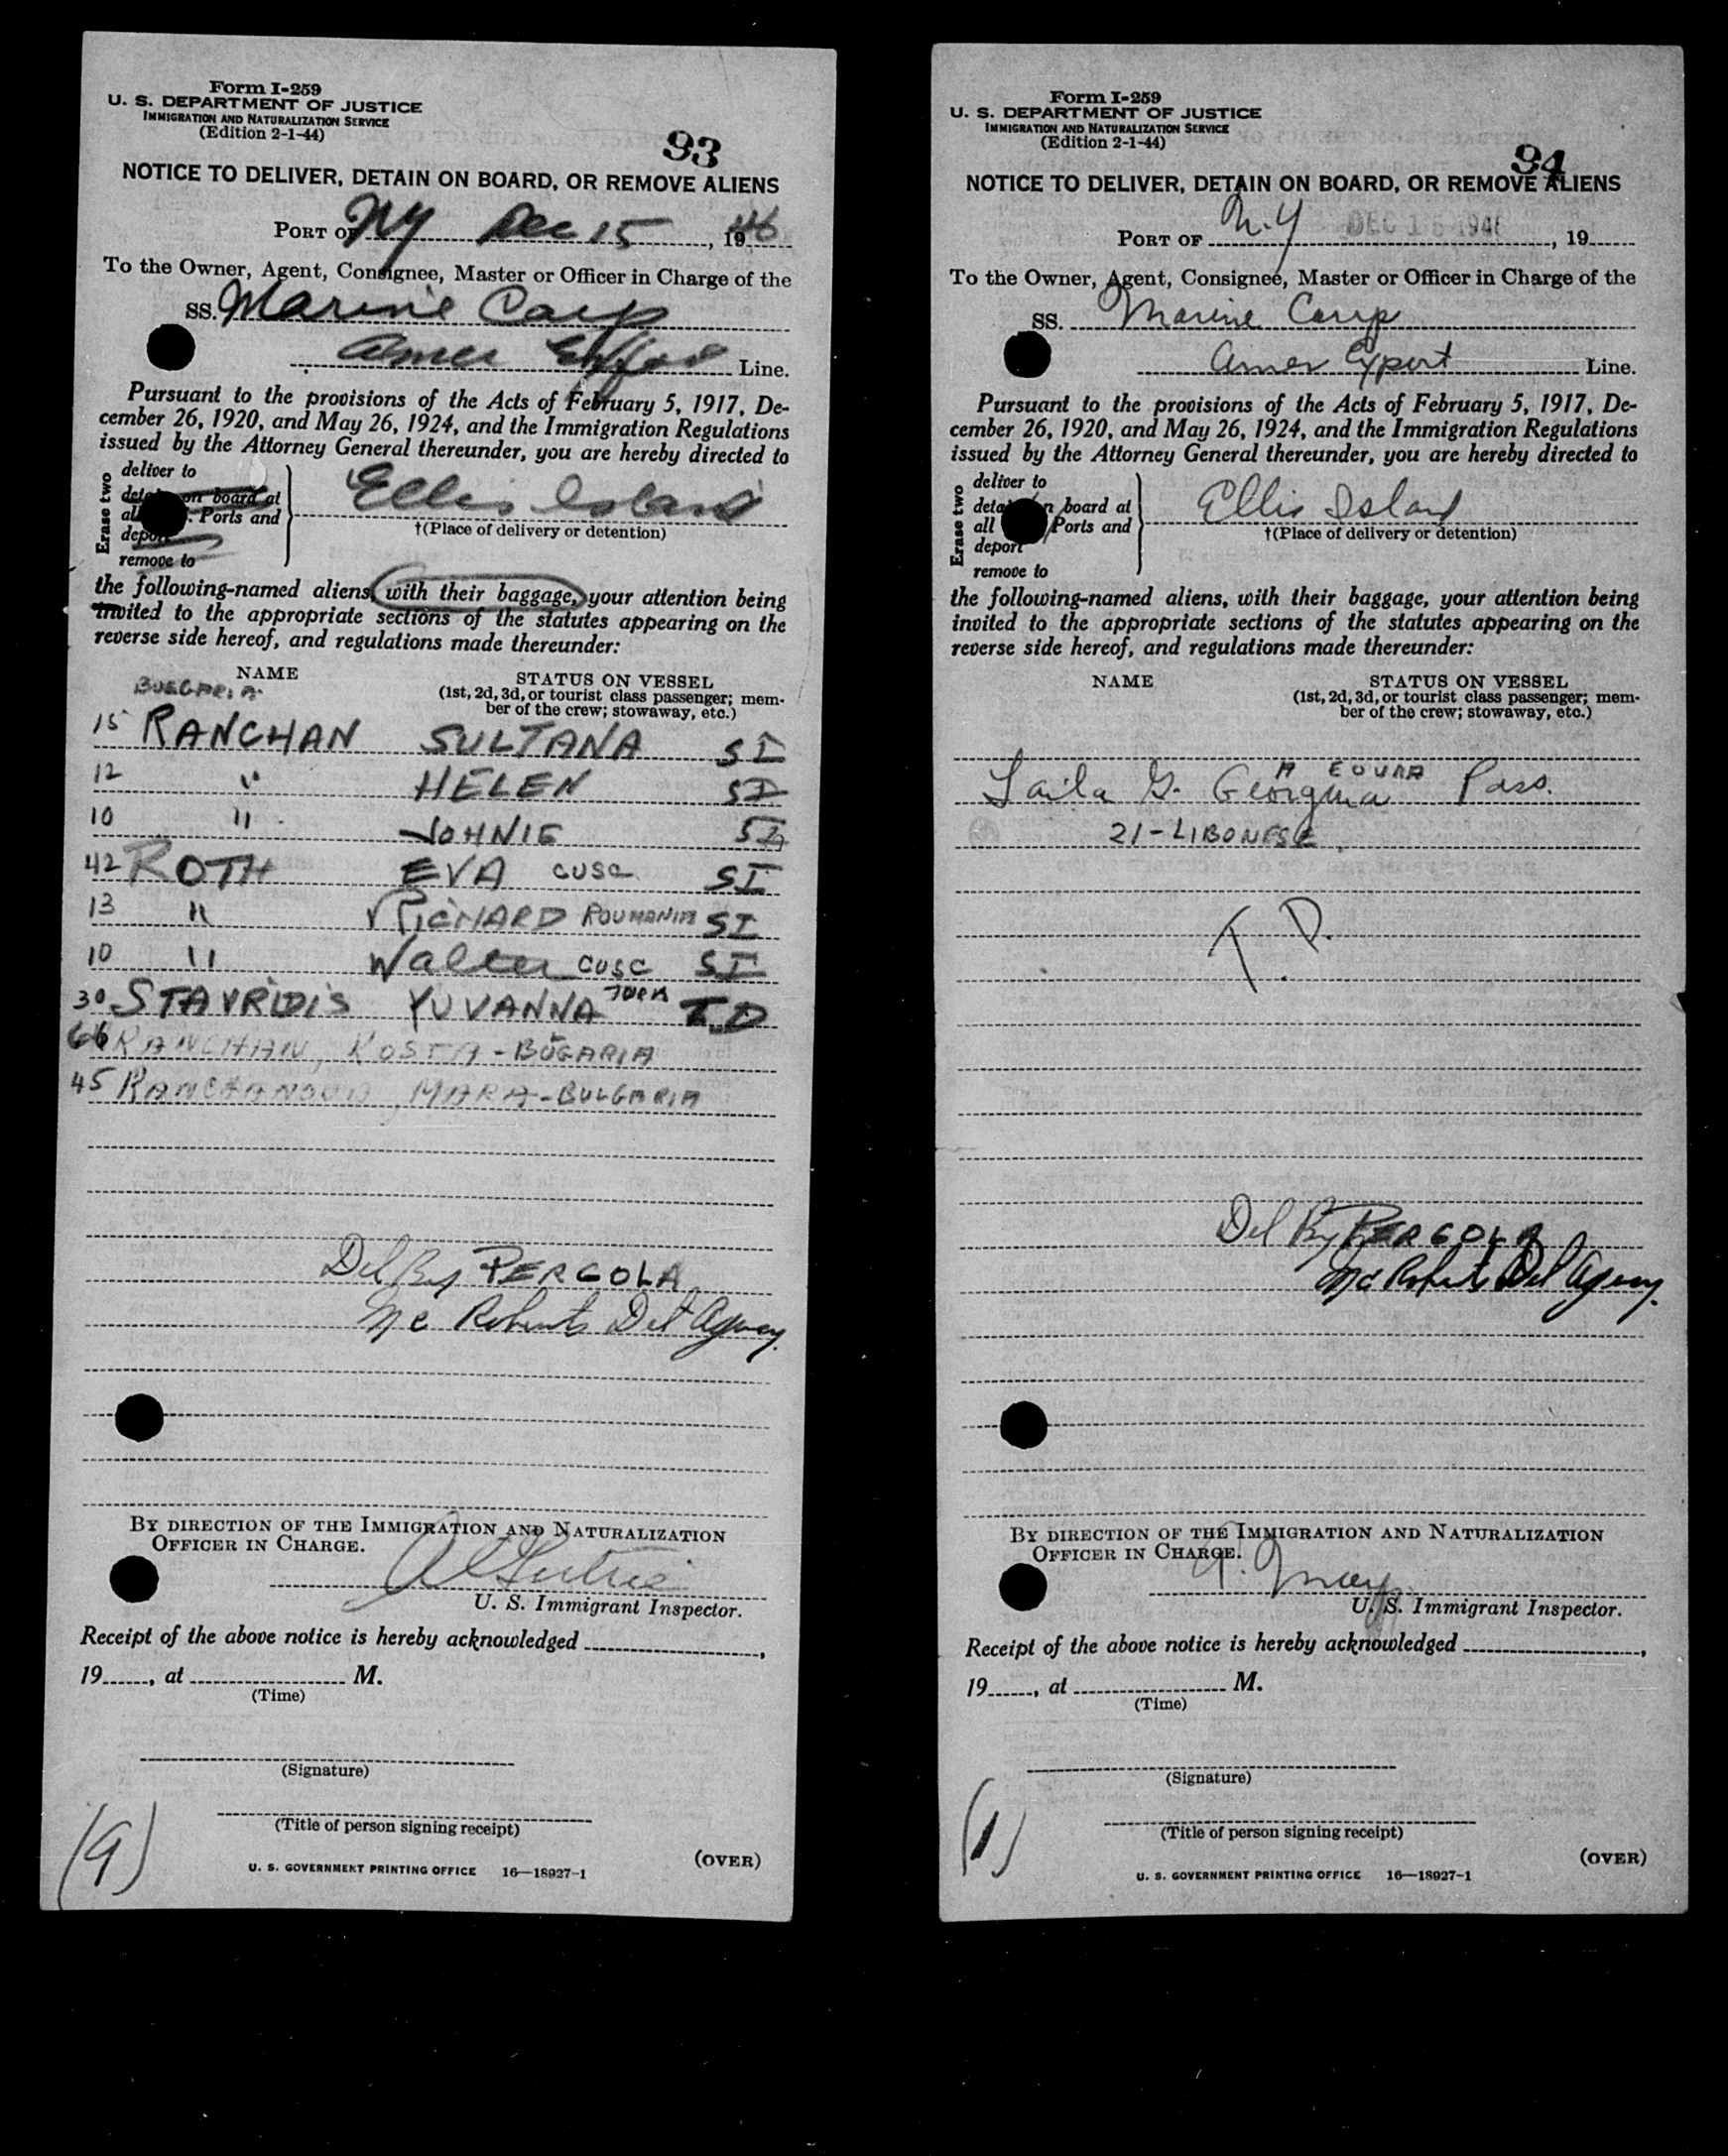 Form I-259
U. S. DEPARTMENT OF JUSTICE
IMMIGRATION AND NATURALIZATION SERVICE
(Edition 2-1-44)
93
NOTICE TO DELIVER, DETAIN ON BOARD, OR REMOVE ALIENS
PORT OF NY Dec 15, 1946
To the Owner, Agent, Consignee, Master or Officer in Charge of the
SS. Marine Carp
Amer Export Line.
Pursuant to the provisions of the Acts of February 5, 1917, De-
cember 26, 1920, and May 26, 1924, and the Immigration Regulations
issued by the Attorney General thereunder, you are hereby directed to
Erase two
deliver to
on board at
Ports and
remove to
Ellis Island
†(Place of delivery or detention)
the following-named aliens, with their baggage, your attention being
invited to the appropriate sections of the statutes appearing on the
reverse side hereof, and regulations made thereunder:
NAME
STATUS ON VESSEL
(1st, 2d, 3d, or tourist class passenger; mem-
ber of the crew; stowaway, etc.)
15 RANCHAN SULTANA SI
12 " HELEN SI
10 " JOHNIE SI
42 ROTH EVA CUSC SI
13 " RICHARD ROUMANIA SI
10 " Walter CUSC SI
30 STAVRIDIS YUVANNA TURK T.D
66 RANCHAN, KOSTA - BUGARIA
45 MARA - BULGARIA
Del By PERGOLA
Mc Roberts Del Agency.
BY DIRECTION OF THE IMMIGRATION AND NATURALIZATION
OFFICER IN CHARGE.
U. S. Immigrant Inspector.
Receipt of the above notice is hereby acknowledged ,
19 , at M.
(Time)
(Signature)
(Title of person signing receipt)
(9)
U. S. GOVERNMENT PRINTING OFFICE 16—18927-1
(OVER)
Form I-259
U. S. DEPARTMENT OF JUSTICE
IMMIGRATION AND NATURALIZATION SERVICE
(Edition 2-1-44)
94
NOTICE TO DELIVER, DETAIN ON BOARD, OR REMOVE ALIENS
PORT OF N.Y DEC 15 1946, 19
To the Owner, Agent, Consignee, Master or Officer in Charge of the
SS. Marine Carp
Amer Export Line.
Pursuant to the provisions of the Acts of February 5, 1917, De-
cember 26, 1920, and May 26, 1924, and the Immigration Regulations
issued by the Attorney General thereunder, you are hereby directed to
Erase two
deliver to
board at
all Ports and
deport
remove to
Ellis Island
†(Place of delivery or detention)
the following-named aliens, with their baggage, your attention being
invited to the appropriate sections of the statutes appearing on the
reverse side hereof, and regulations made thereunder:
NAME
STATUS ON VESSEL
(1st, 2d, 3d, or tourist class passenger; mem-
ber of the crew; stowaway, etc.)
Laila G. Pass.
21 - LIBONESE
T. D.
Del By PERGOLA
Mc Roberts Del Agency.
BY DIRECTION OF THE IMMIGRATION AND NATURALIZATION
OFFICER IN CHARGE.
U. S. Immigrant Inspector.
Receipt of the above notice is hereby acknowledged ,
19 , at M.
(Time)
(Signature)
(Title of person signing receipt)
(1)
U. S. GOVERNMENT PRINTING OFFICE 16—18927-1
(OVER)